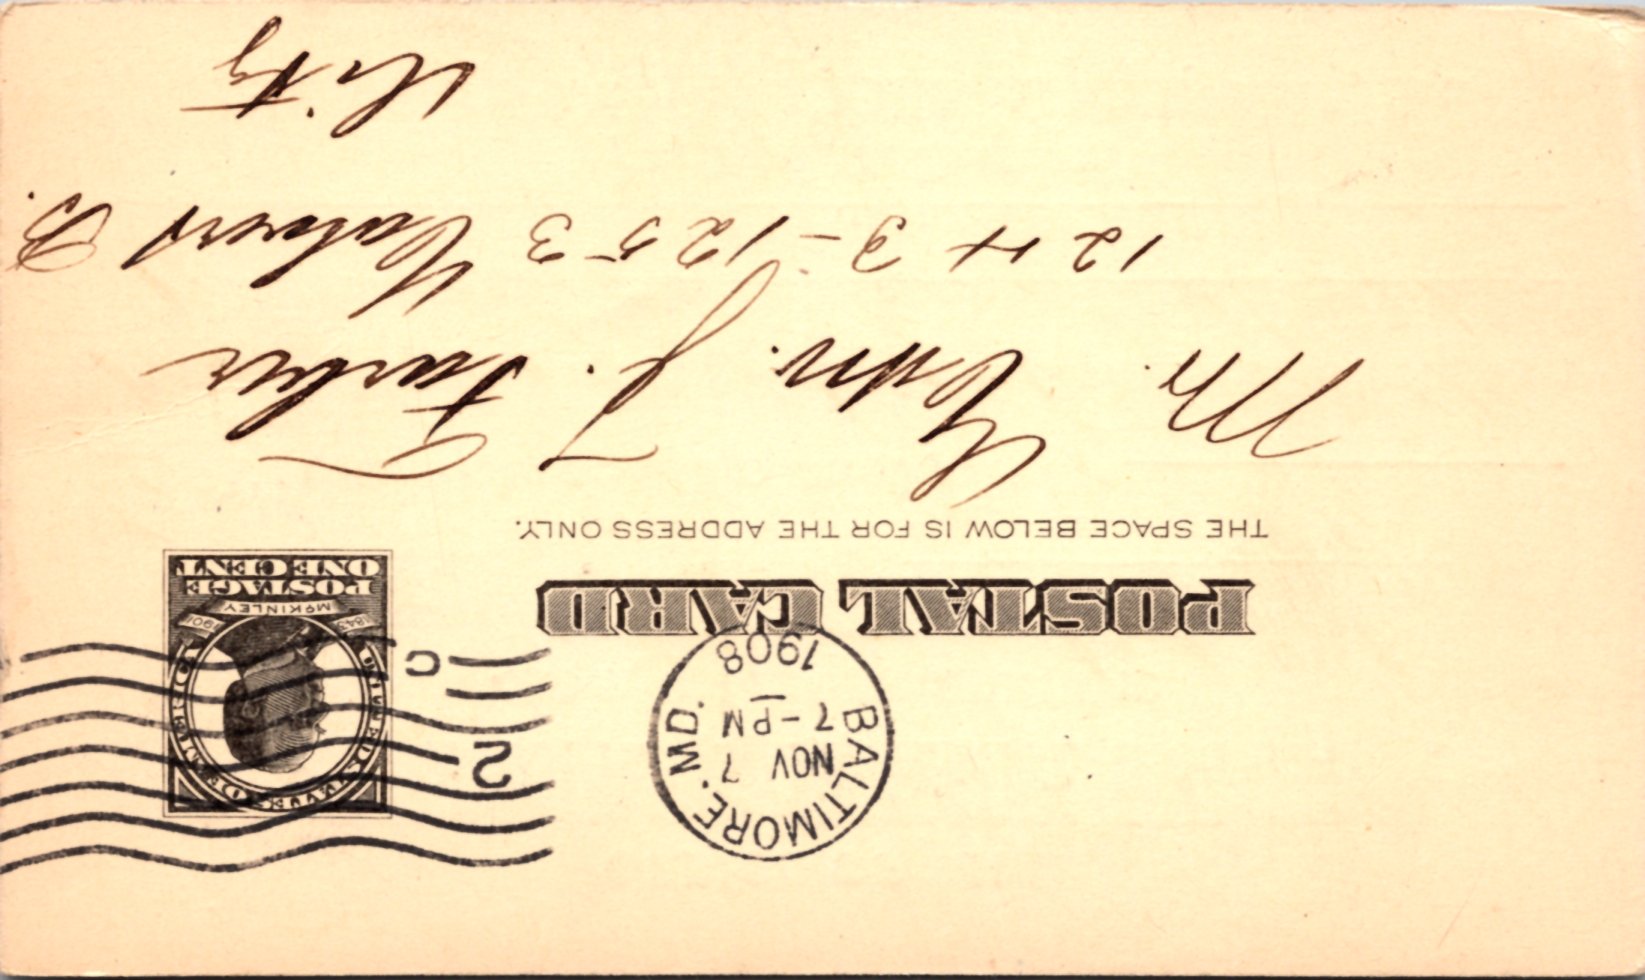 BALTIMORE, MD.
NOV 7
7-PM
1908
2
C
1843 McKINLEY 1901
POSTAGE
ONE CENT
POSTAL CARD
THE SPACE BELOW IS FOR THE ADDRESS ONLY.
Mr. J. Farber
1243-1253 Calvert B.
City